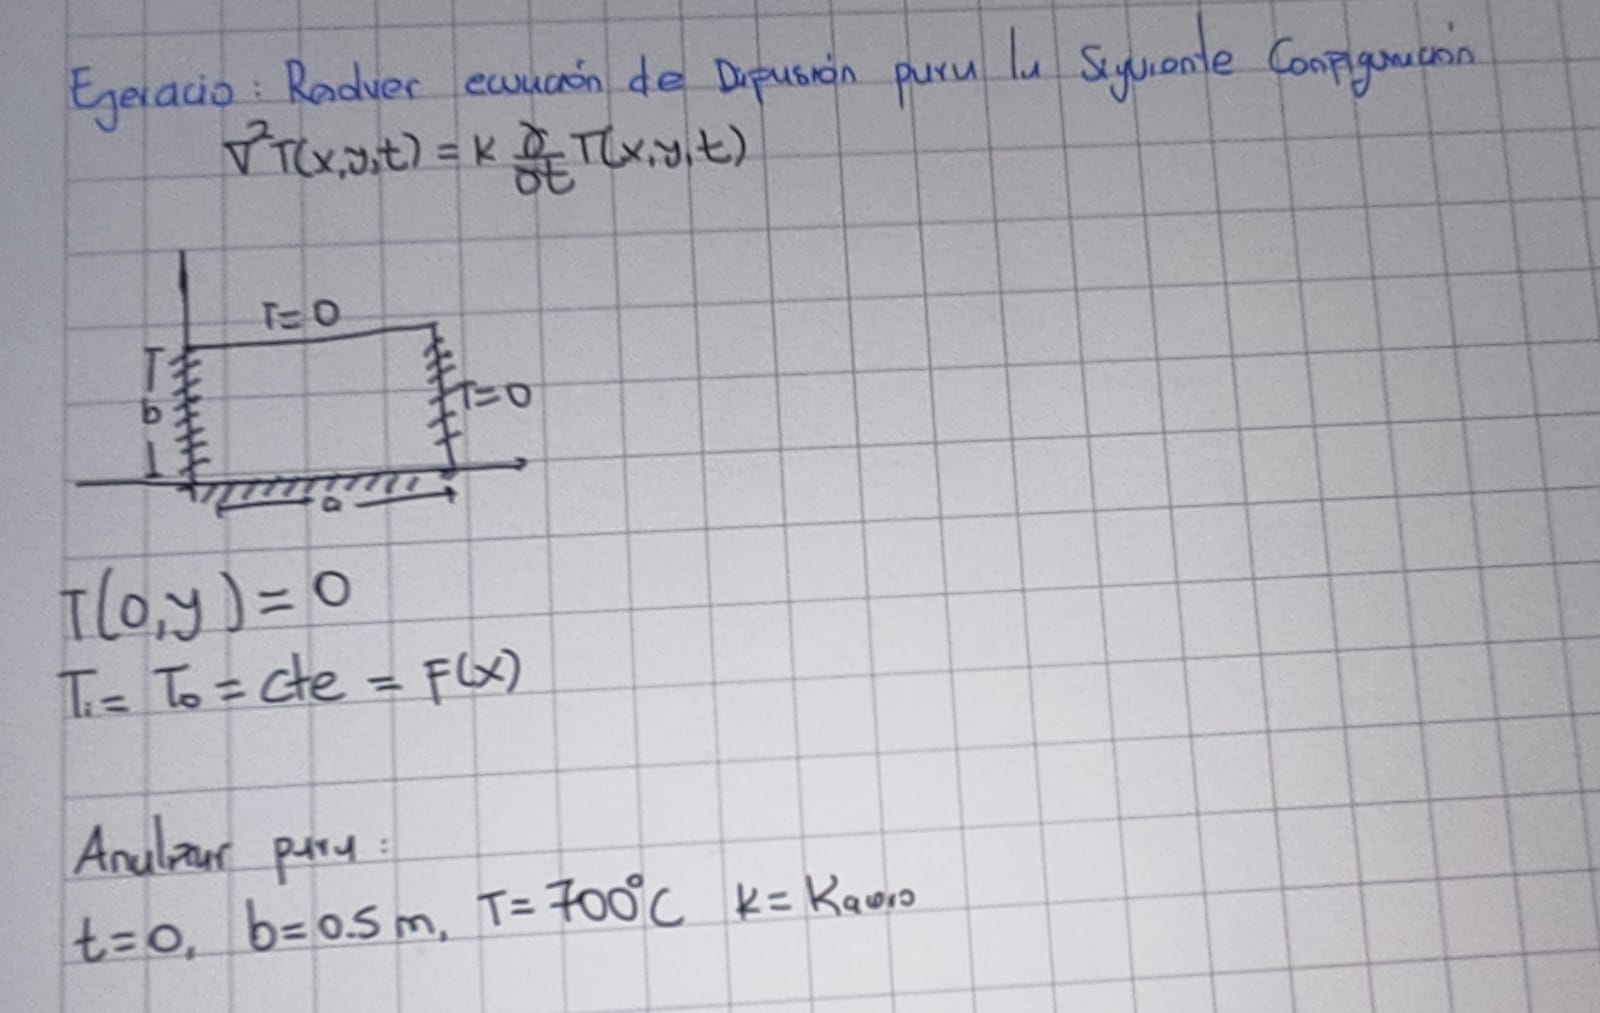 Ejercicio: Resolver ecuación de Difusión para la Siguiente Configuración
∇²T(x,y,t) = K ∂/∂t T(x,y,t)
T=0
b
T=0
a
T(0,y) = 0
Ti = To = cte = F(x)
Analizar para:
t=0, b=0.5m, T=700°C K=Kacero